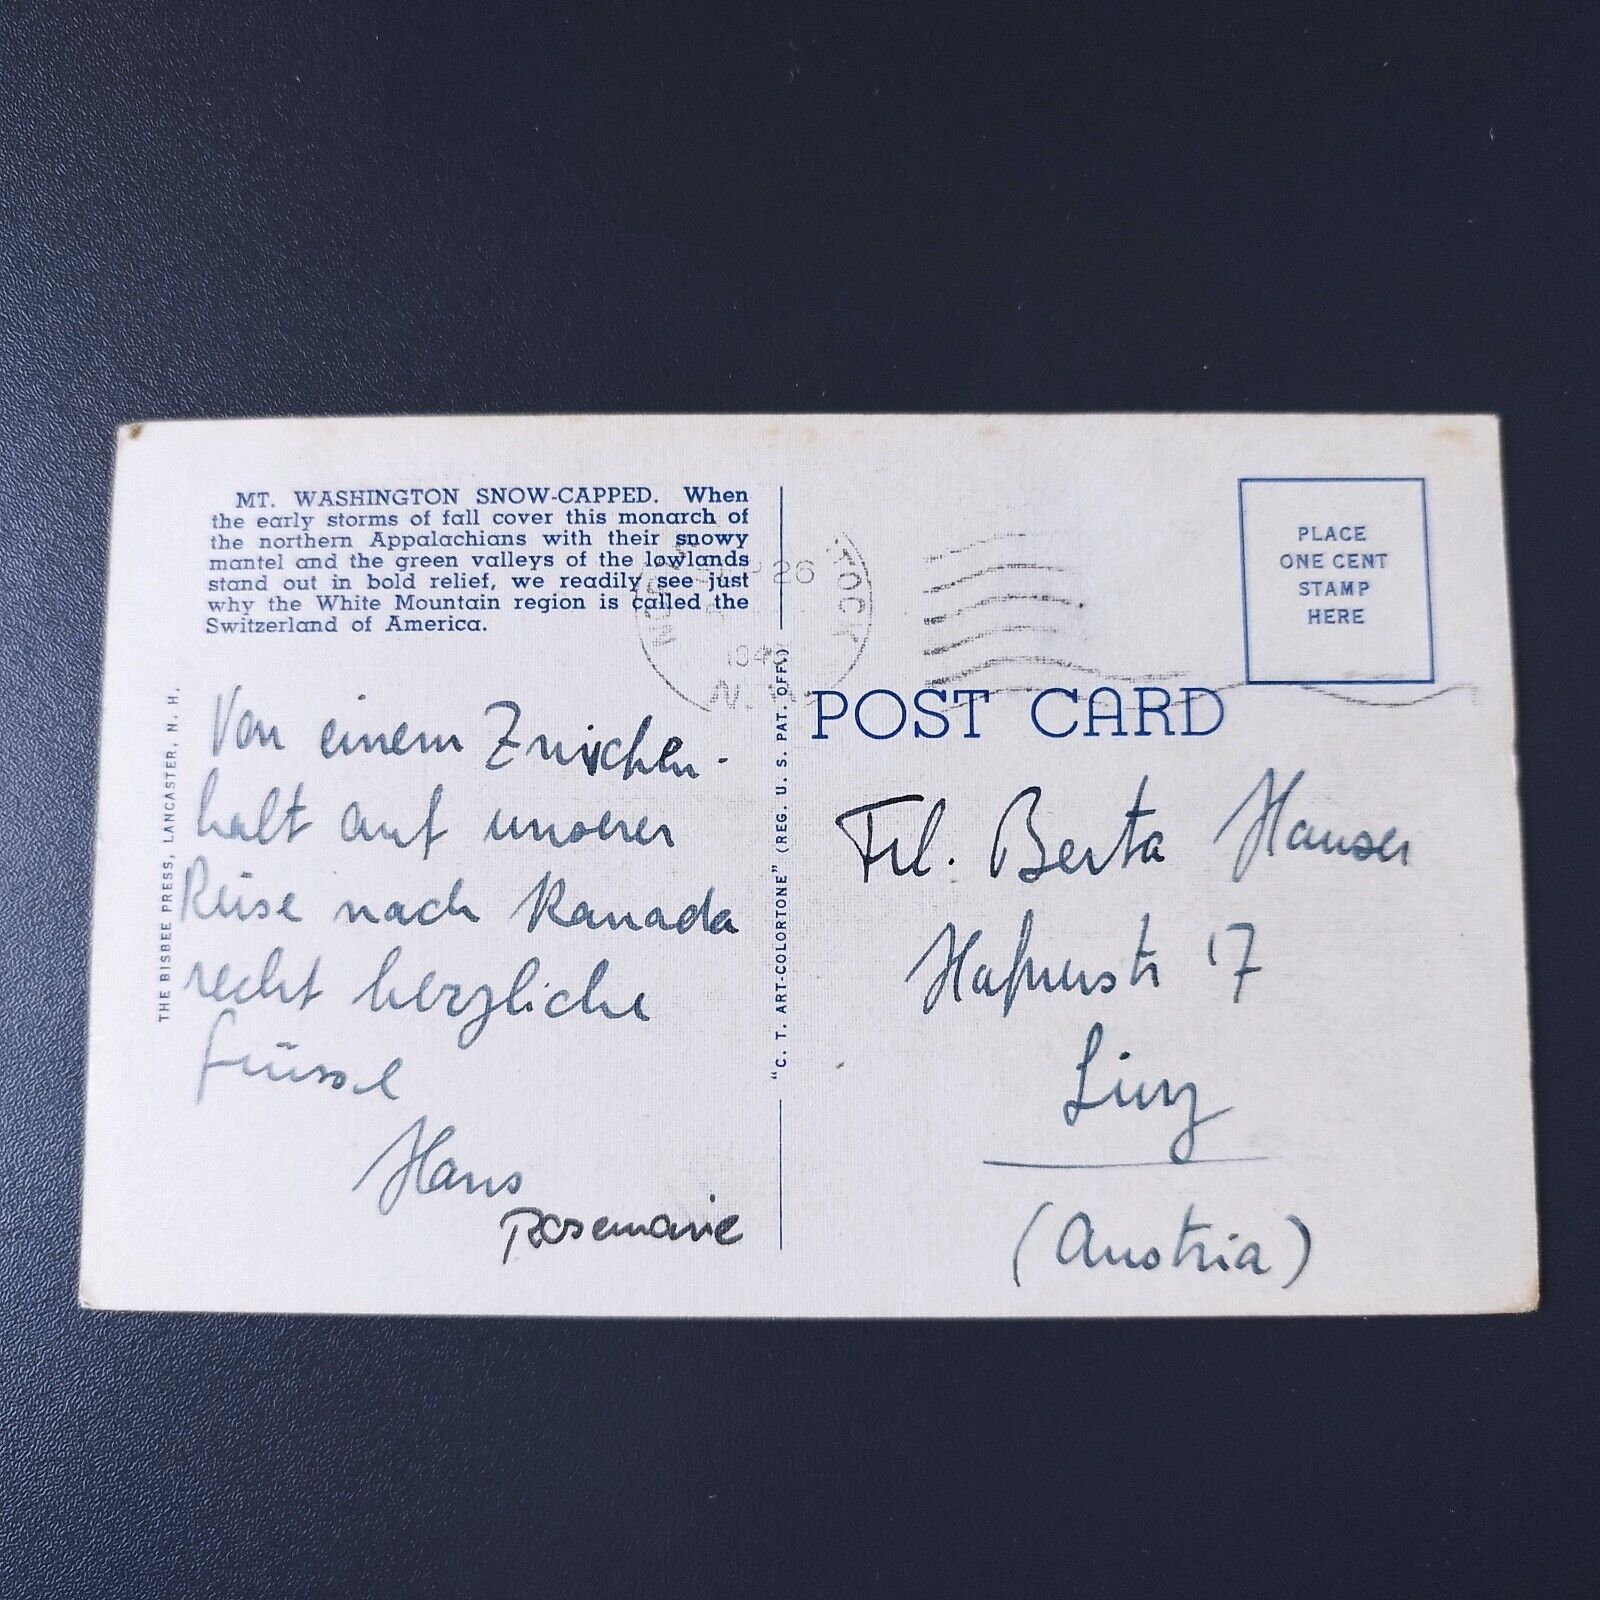 MT. WASHINGTON SNOW-CAPPED. When
the early storms of fall cover this monarch of
the northern Appalachians with their snowy
mantel and the green valleys of the lowlands
stand out in bold relief, we readily see just
why the White Mountain region is called the
Switzerland of America.
THE BISBEE PRESS, LANCASTER, N. H.
Von einem Zwischen-
halt auf unserer
Reise nach Kanada
recht herzliche
Grüsse
Hans
Rosemarie
"C. T. ART-COLORTONE" (REG. U. S. PAT. OFF.)
26
N.H.
PLACE
ONE CENT
STAMP
HERE
POST CARD
Frl. Berta Hauser
Hafnerstr 17
Linz
(Austria)